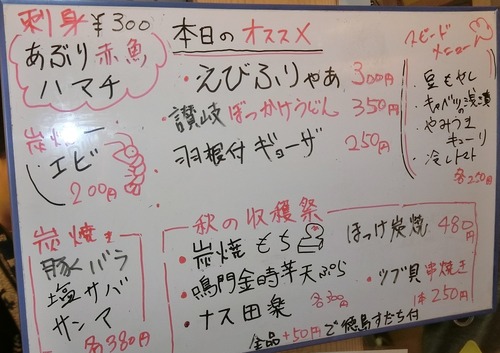 刺身 ¥300
あぶり赤魚
ハマチ
炭焼
エビ
200円
炭焼き
豚バラ
塩サバ
サンマ
各380円
本日のオススメ
・えびふりゃあ 300円
・讃岐ぼっかけうどん 350円
・羽根付ギョーザ 250円
スピードメニュー
・豆もやし
・キャベツの浅漬
・やみつきキューリ
・冷しトマト
各250円
秋の収穫祭
・炭焼もち
・鳴門金時芋天ぷら
・ナス田楽
各300円
ほっけ炭焼 480円
・ツブ貝串焼き
1本250円
全品+50円で徳島すだち付